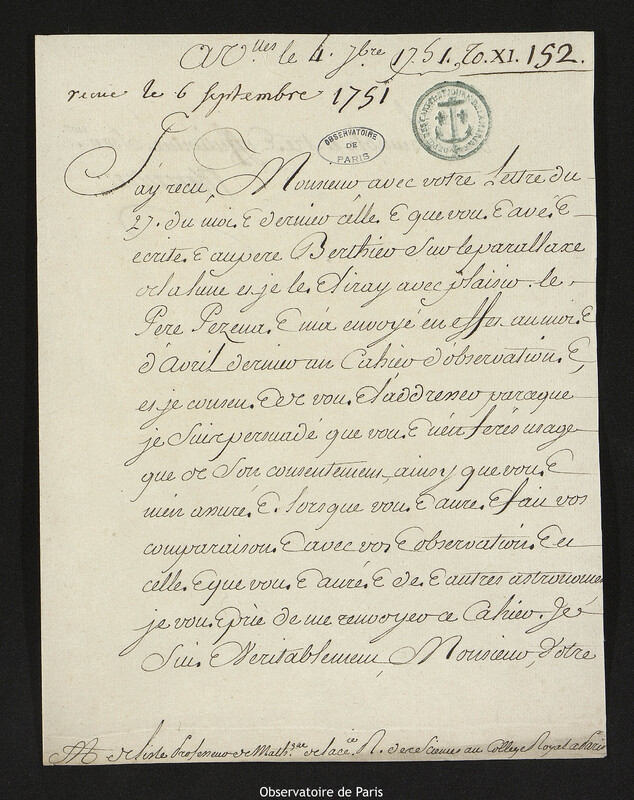 A V.lles le 4. 7bre 1751. To. XI. 152.
recue le 6 septembre 1751
OBSERVATOIRE
DE
PARIS
J'ay reçu, Monsieur avec votre Lettre du
27. du mois dernier celle que vous avés
ecrite au pere Berthier sur le parallaxe
de la lune et je le liray avec plaisir. le
Pere Pezenas m'a envoyé en effet au mois
d'Avril dernier un Cahier d'observations,
et je consens de vous l'addresser parceque
je suis persuadé que vous n'en ferés usage
que de Son consentement, ainsy que vous
m'en assurés. lorsque vous aures fait vos
comparaisons avec vos observations et
celles que vous aurés des autres astronomes
je vous prie de me renvoyer ce Cahier. Je
Suis Veritablement, Monsieur, Votre
M. de lisle Professeur de Math.que de l'ac.ie R. des Sciences au College Royal a Paris
Observatoire de Paris